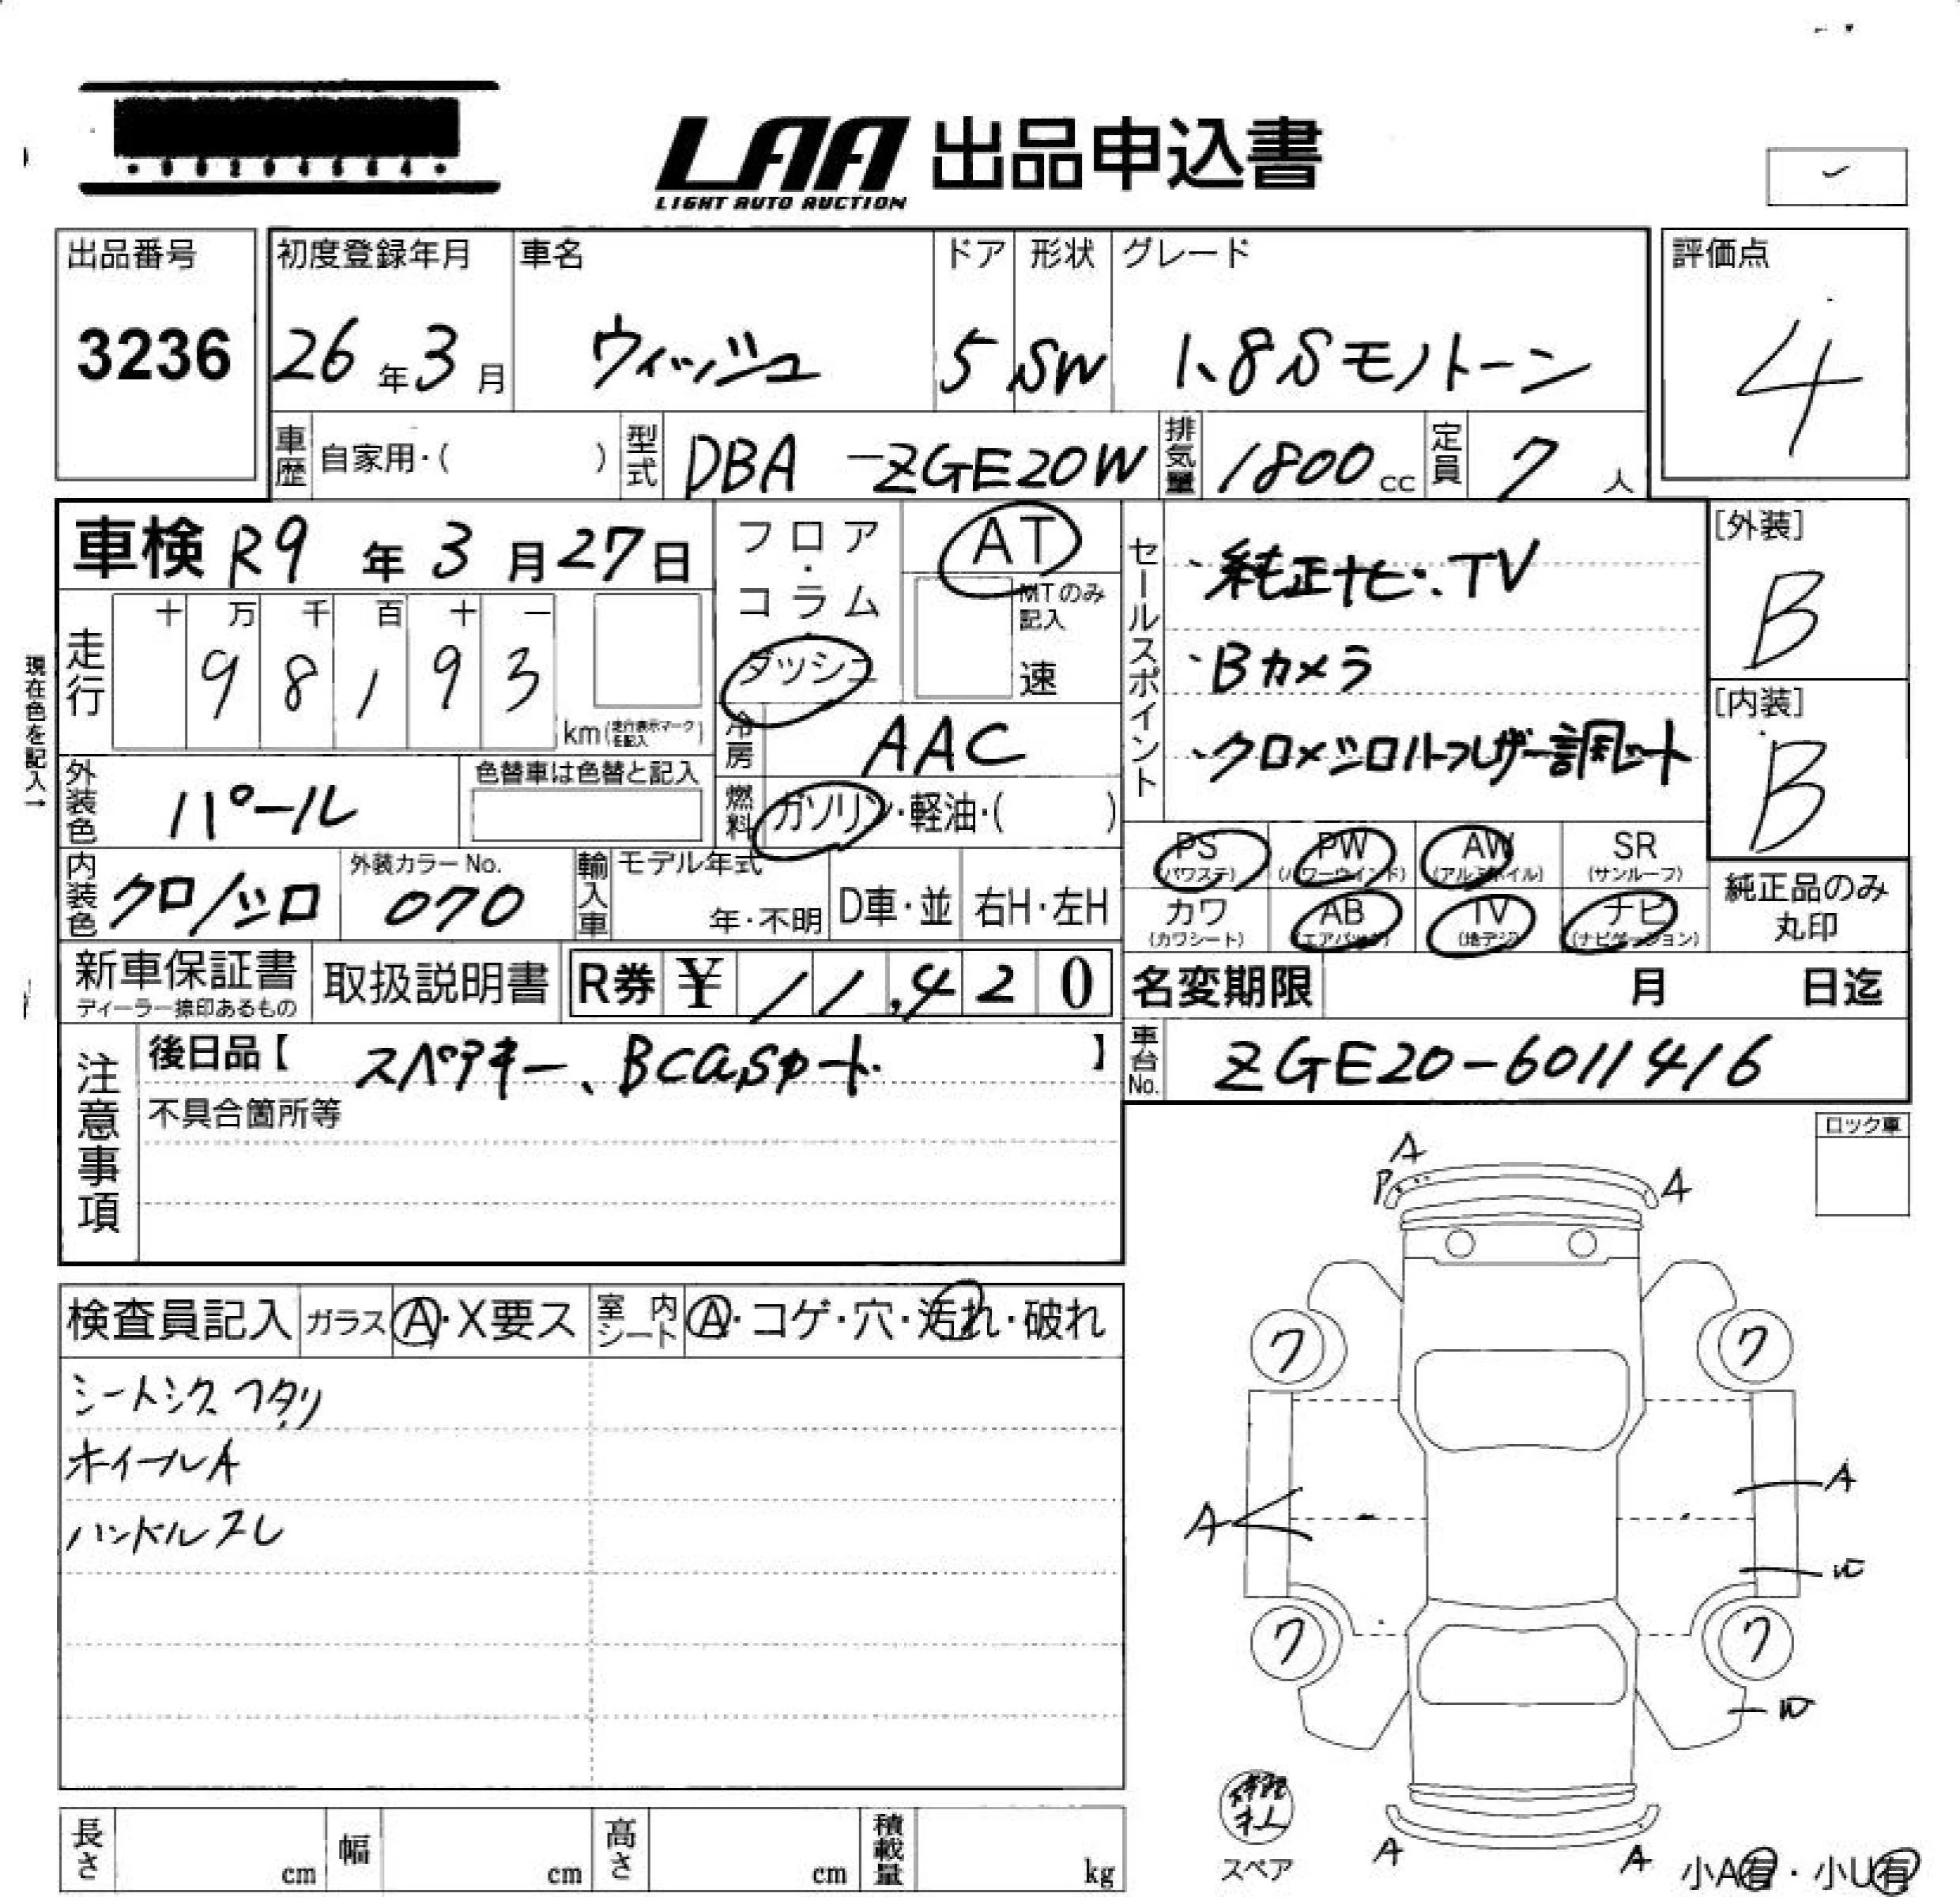 LAA 出品申込書
LIGHT AUTO AUCTION
出品番号 3236
初度登録年月 26年3月
車名 ウィッシュ
ドア 5
形状 SW
グレード 1.8Sモノトーン
評価点 4
車歴 自家用・( )
型式 DBA-ZGE20W
排気量 1800cc
定員 7人
車検 R9年3月27日
フロア・コラム・ダッシュ
AT
MTのみ記入
速
セールスポイント
・純正ナビ・TV
・Bカメラ
[外装] B
[内装] B
現在色を記入→
走行 十万千百十一
98193
km(走行表示マークを記入)
冷房 AAC
外装色 パール
色替車は色替と記入
燃料 ガソリン・軽油・( )
内装色 クロ/シロ
外装カラーNo. 070
輸入車 モデル年式
年・不明 D車・並 右H・左H
PS (パワステ) PW (パワーウインド) AW (アルミホイル) SR (サンルーフ)
カワ (カワシート) AB (エアバック) TV (地デジ) ナビ (ナビゲーション)
純正品のみ
丸印
新車保証書
ディーラー捺印あるもの
取扱説明書
R券 ¥ 11,420
名変期限 月 日迄
注意事項
後日品【 スペアキー、Bcasカード 】
車台No. ZGE20-6011416
不具合箇所等
ロック車
A
A
検査員記入 ガラス A・X要ス 室内シート A・コゲ・穴・汚れ・破れ
シートシワ フタリ
ホイールA
ハンドルスレ
ワ ワ
A
A
ワ ワ
W
スペア
A A
小A有・小U有
長さ cm 幅 cm 高さ cm 積載量 kg